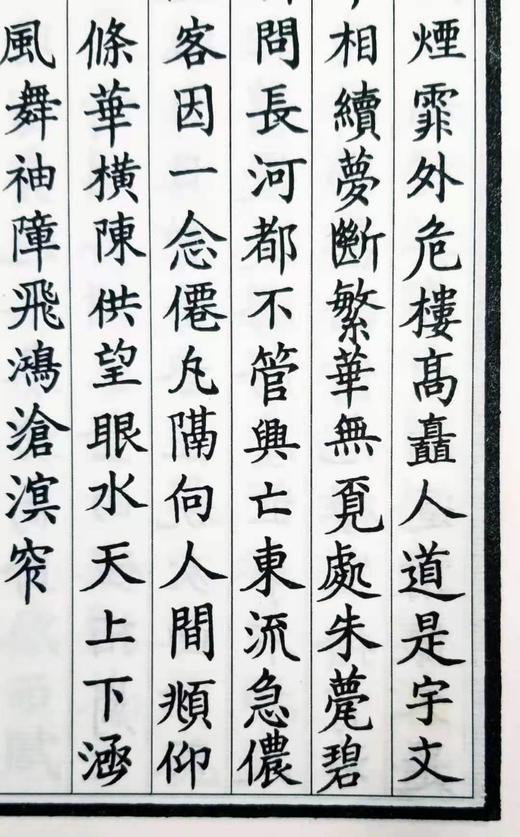 煙霏外危樓髙矗人道是宇文
相續夢斷繁華無覔處朱甍碧
問長河都不管興亡東流急儂
客因一念僊凡隔向人間頫仰
條華橫陳供望眼水天上下涵
風舞袖障飛鴻滄溟窄